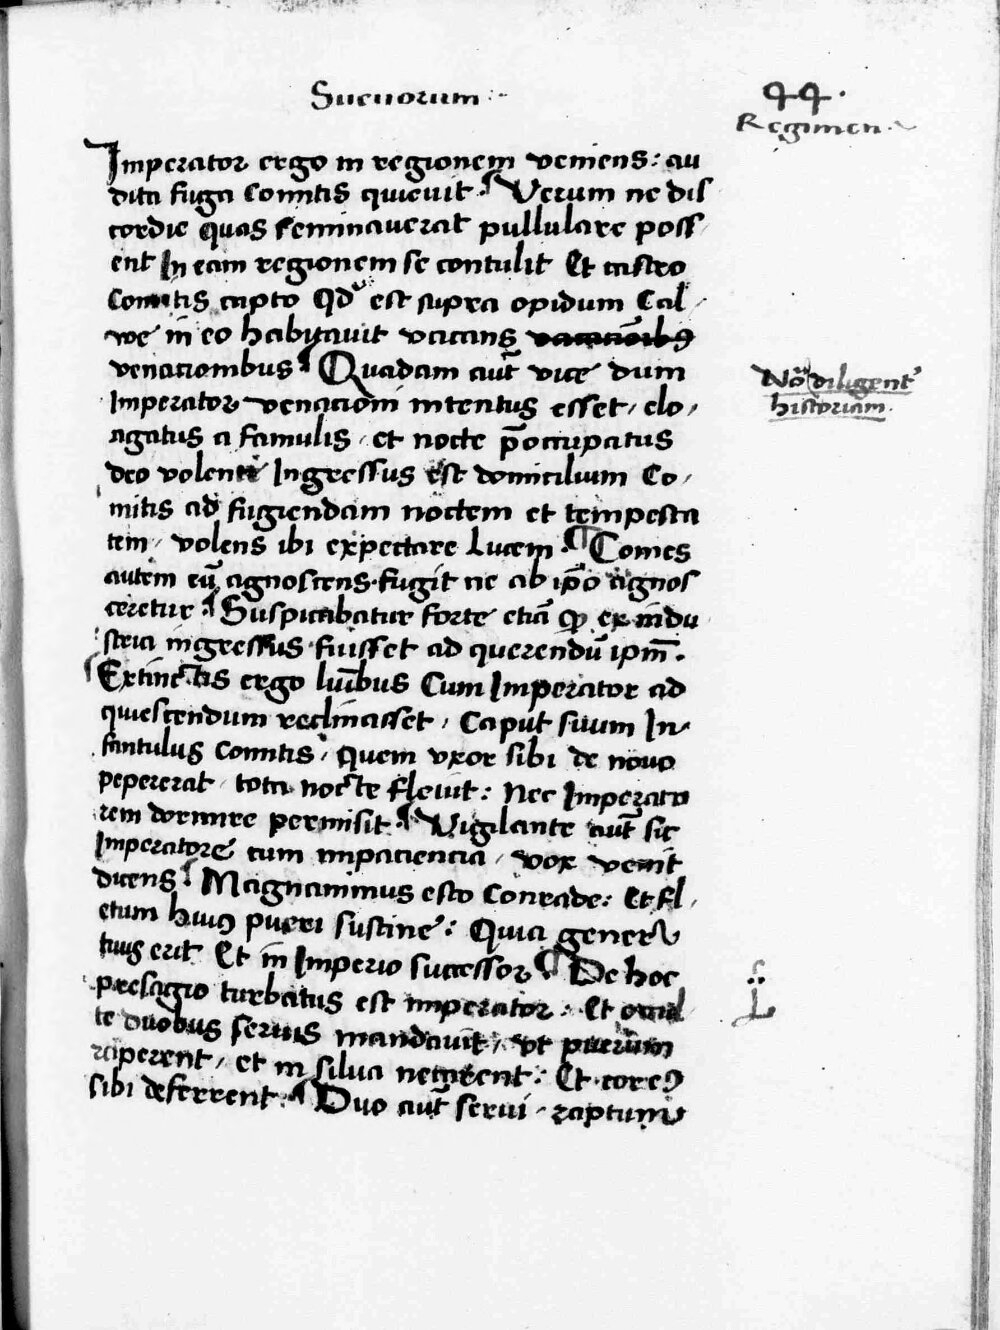 Sueuorum
44.
Regimen
Imperator ergo in regionem veniens: au
dita fuga Comitis quieuit. Verum ne dis
cordie quas seminauerat pullulare poss
ent In eam regionem se contulit Et castro
Comitis capto qd est supra opidum Cal
we in eo habitauit vacans vacacionibꝰ
venacionibus Quadam aut̄ vice dum
Imperator venacioni intentus esset, elo
agatus a famulis, et nocte p̄occupatus
deo volente Ingressus est domicilium Co
mitis ad fugiendam noctem et tempesta
tem, volens ibi expectare lucem. Comes
autem eū agnoscens. fugit ne ab ip̄o agnos
ceretur. Suspicabatur forte etiā ꝙ ex indu
stria ingressus fuisset ad querendū ipm̄.
Extinctis ergo lum̄bus Cum Imperator ad
quiescendum reclinasset, Caput suum In
fantulus Comitis, quem vxor sibi de nouo
pepererat, tota nocte fleuit: nec Imperato
rem dormire permisit. Vigilante aut̄ sic
Imperatore cum impaciencia, vox venit
dicens: Magnanimus esto Conrade: Et fl
etum huiꝰ pueri sustine: Quia gener
tuus erit Et in Imperio successor De hoc
presagio turbatus est imperator: Et occul
te duobus seruis mandauit, vt puerum
raperent, et in silua necarent: Et cor eꝰ
sibi deferrent. Duo aut̄ serui, raptum
Nō diligent̄
historiam.